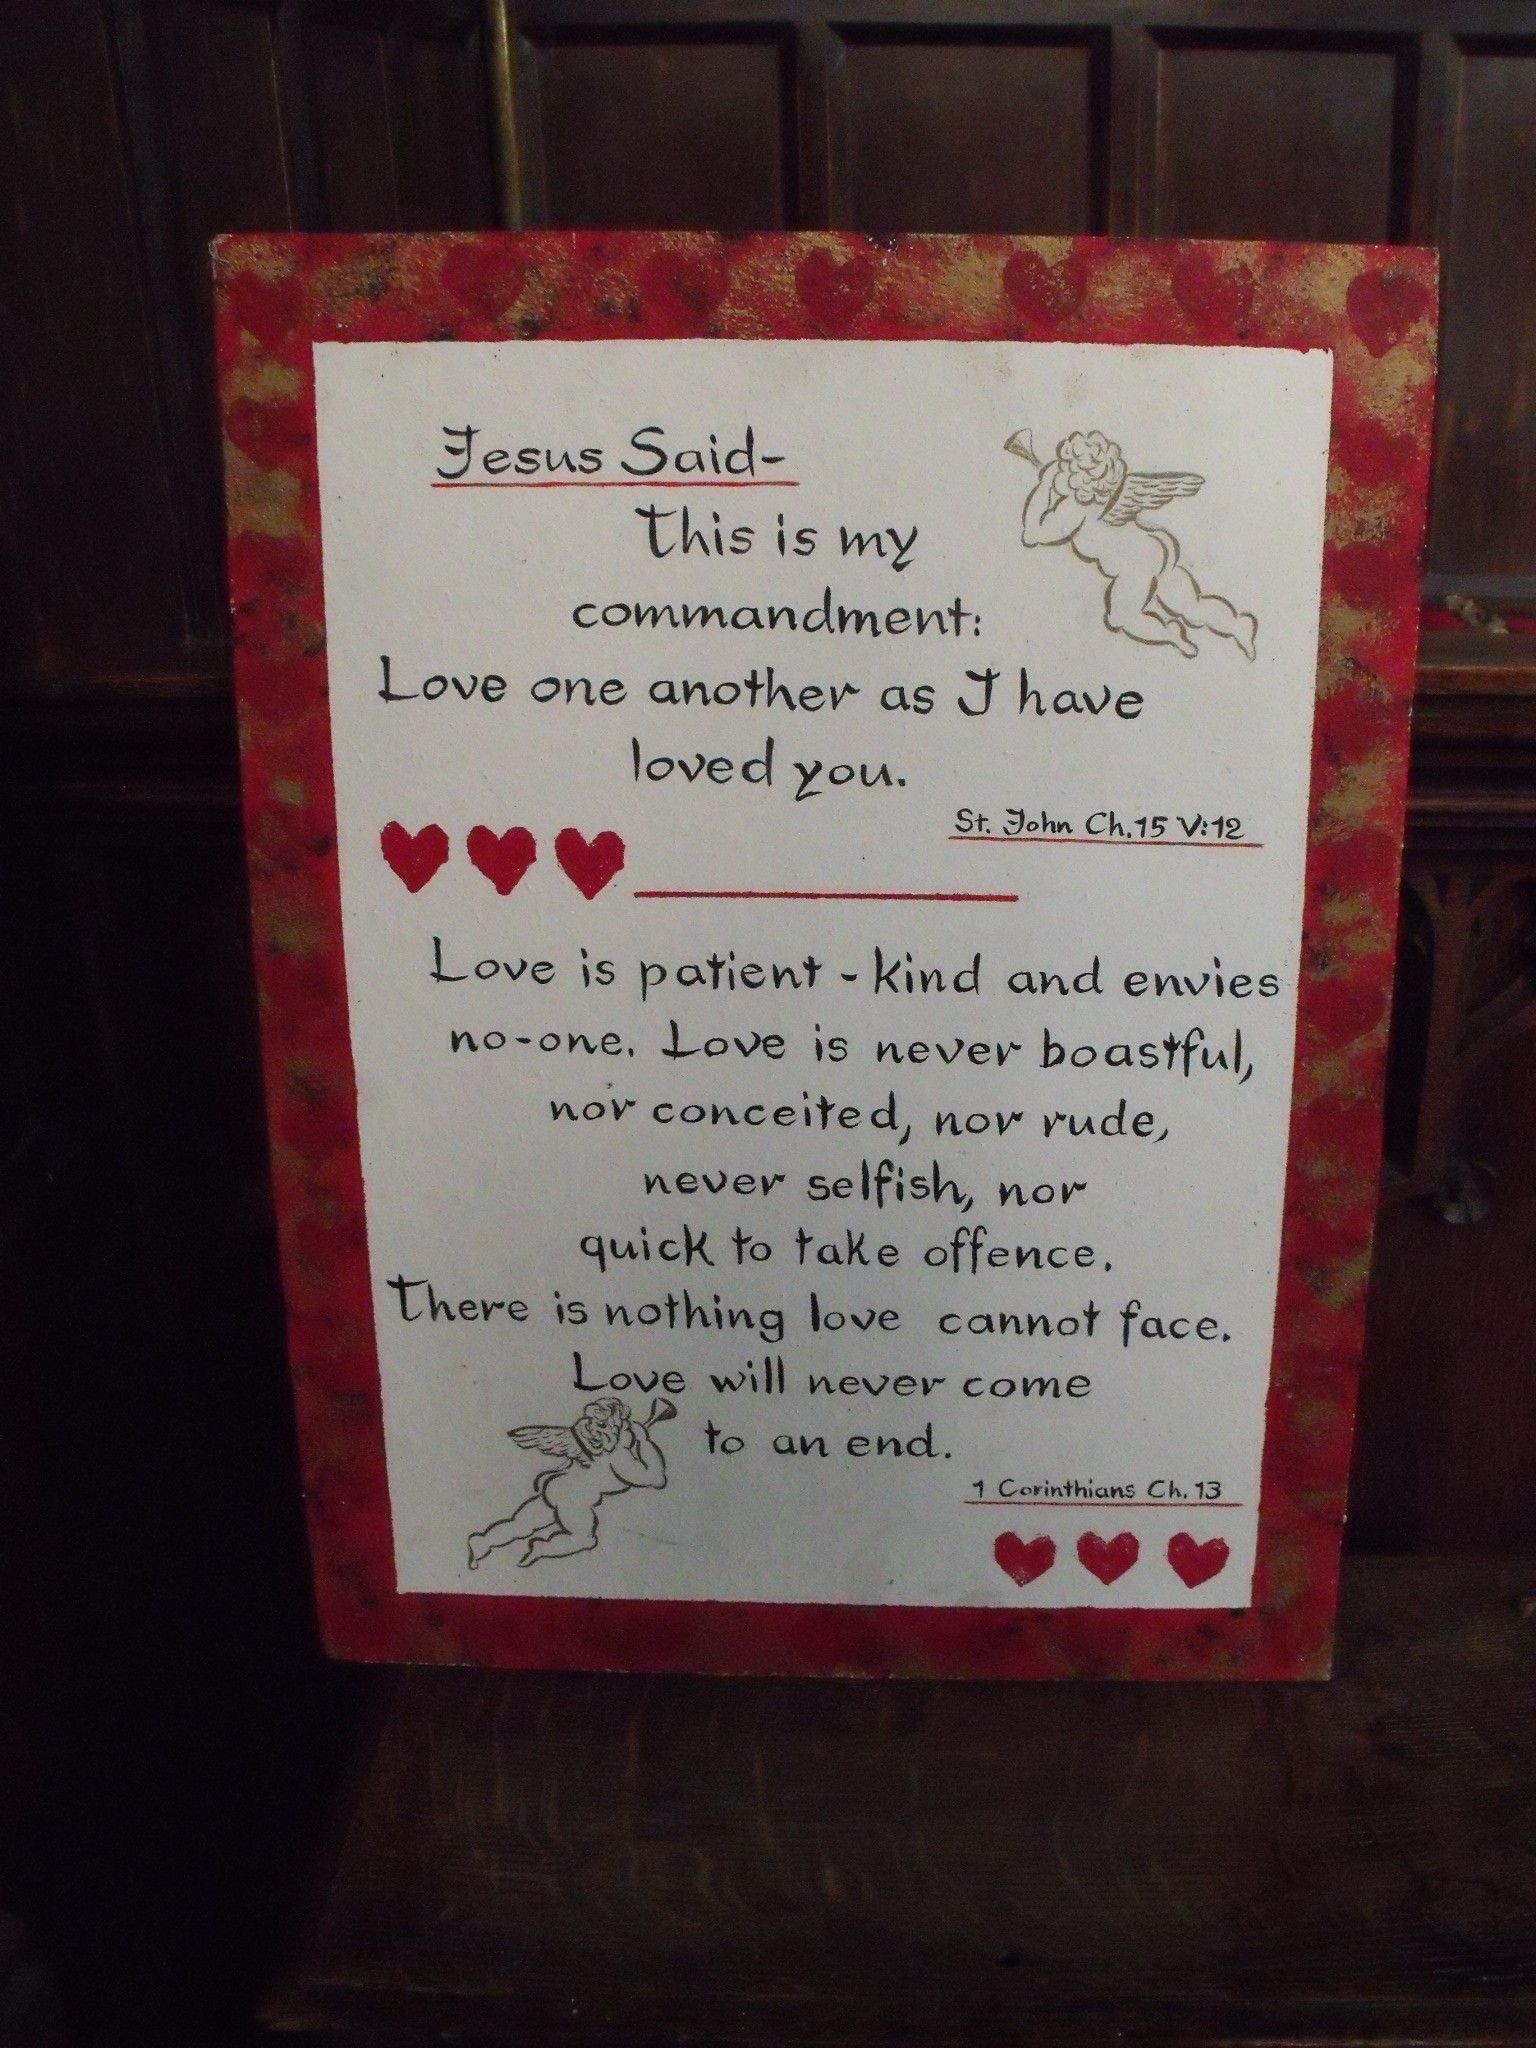 Jesus Said-
This is my
commandment:
Love one another as I have
loved you.
St. John Ch.15 V:12
Love is patient - kind and envies
no-one. Love is never boastful,
nor conceited, nor rude,
never selfish, nor
quick to take offence.
There is nothing love cannot face.
Love will never come
to an end.
1 Corinthians Ch. 13